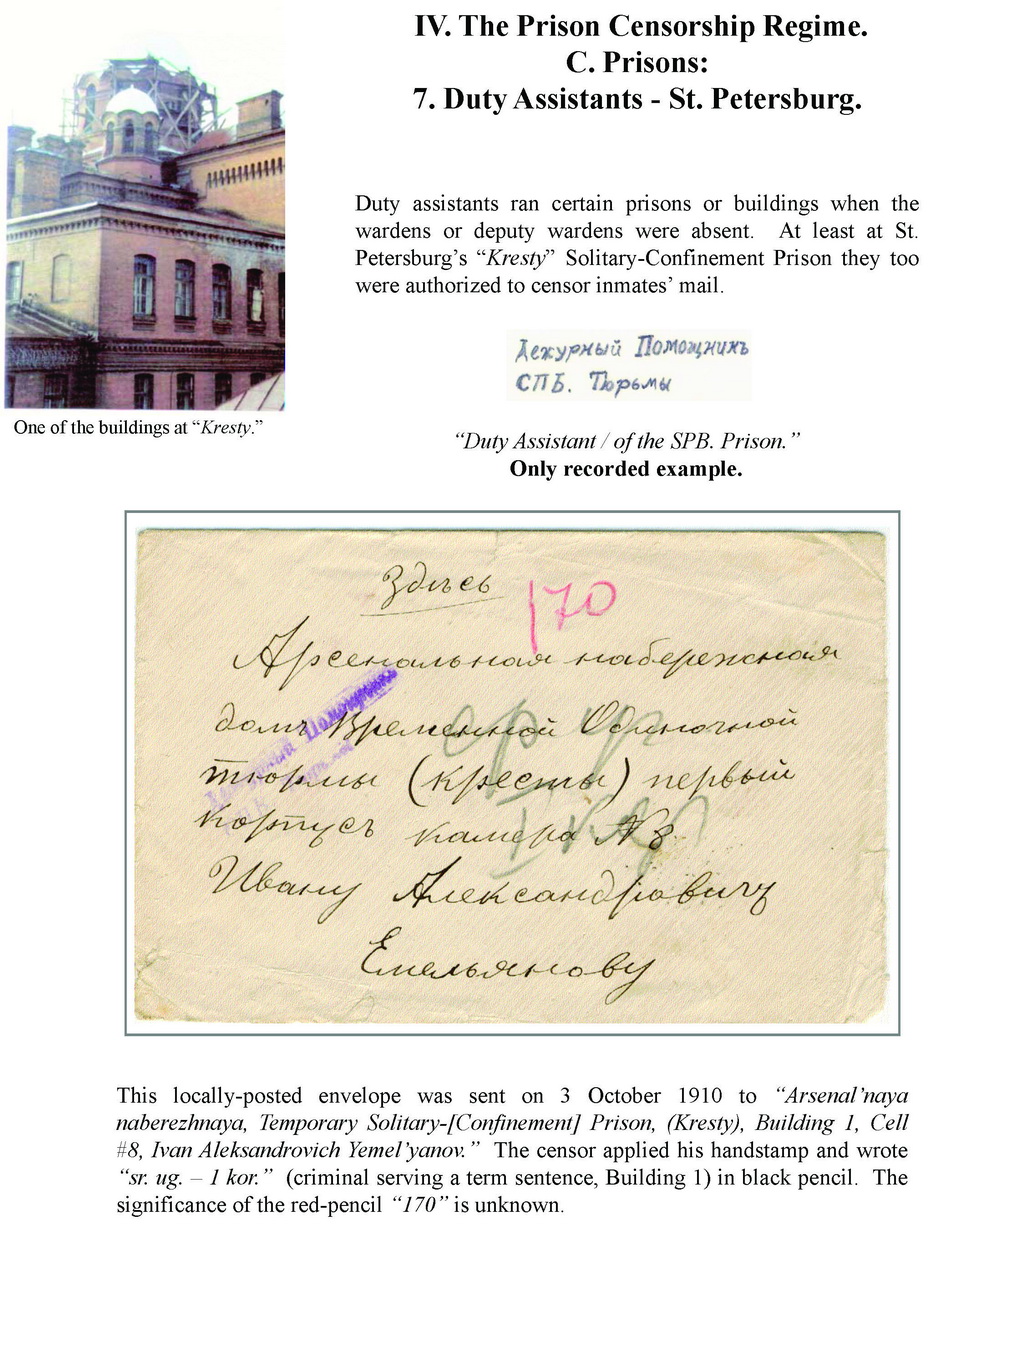 IV. The Prison Censorship Regime.
C. Prisons:
7. Duty Assistants - St. Petersburg.
Duty assistants ran certain prisons or buildings when the
wardens or deputy wardens were absent. At least at St.
Petersburg's “Kresty” Solitary-Confinement Prison they too
were authorized to censor inmates' mail.
Дежурный Помощникъ
СПБ. Тюрьмы
One of the buildings at “Kresty.”
“Duty Assistant / of the SPB. Prison.”
Only recorded example.
Здѣсь
170
Арсенальная набережная
домъ Временной Одиночной
тюрьмы (кресты) первый
корпусъ камера № 8
Ивану Александровичу
Емельянову
Дежурный Помощникъ
ср. уг.
1 кор
This locally-posted envelope was sent on 3 October 1910 to “Arsenal’naya
naberezhnaya, Temporary Solitary-[Confinement] Prison, (Kresty), Building 1, Cell
#8, Ivan Aleksandrovich Yemel’yanov.” The censor applied his handstamp and wrote
“sr. ug. – 1 kor.” (criminal serving a term sentence, Building 1) in black pencil. The
significance of the red-pencil “170” is unknown.